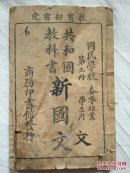 教育部審定
國民學校 春季始業
第三冊 學生用
共和國
教科書
新國文
商務印書館發行
文